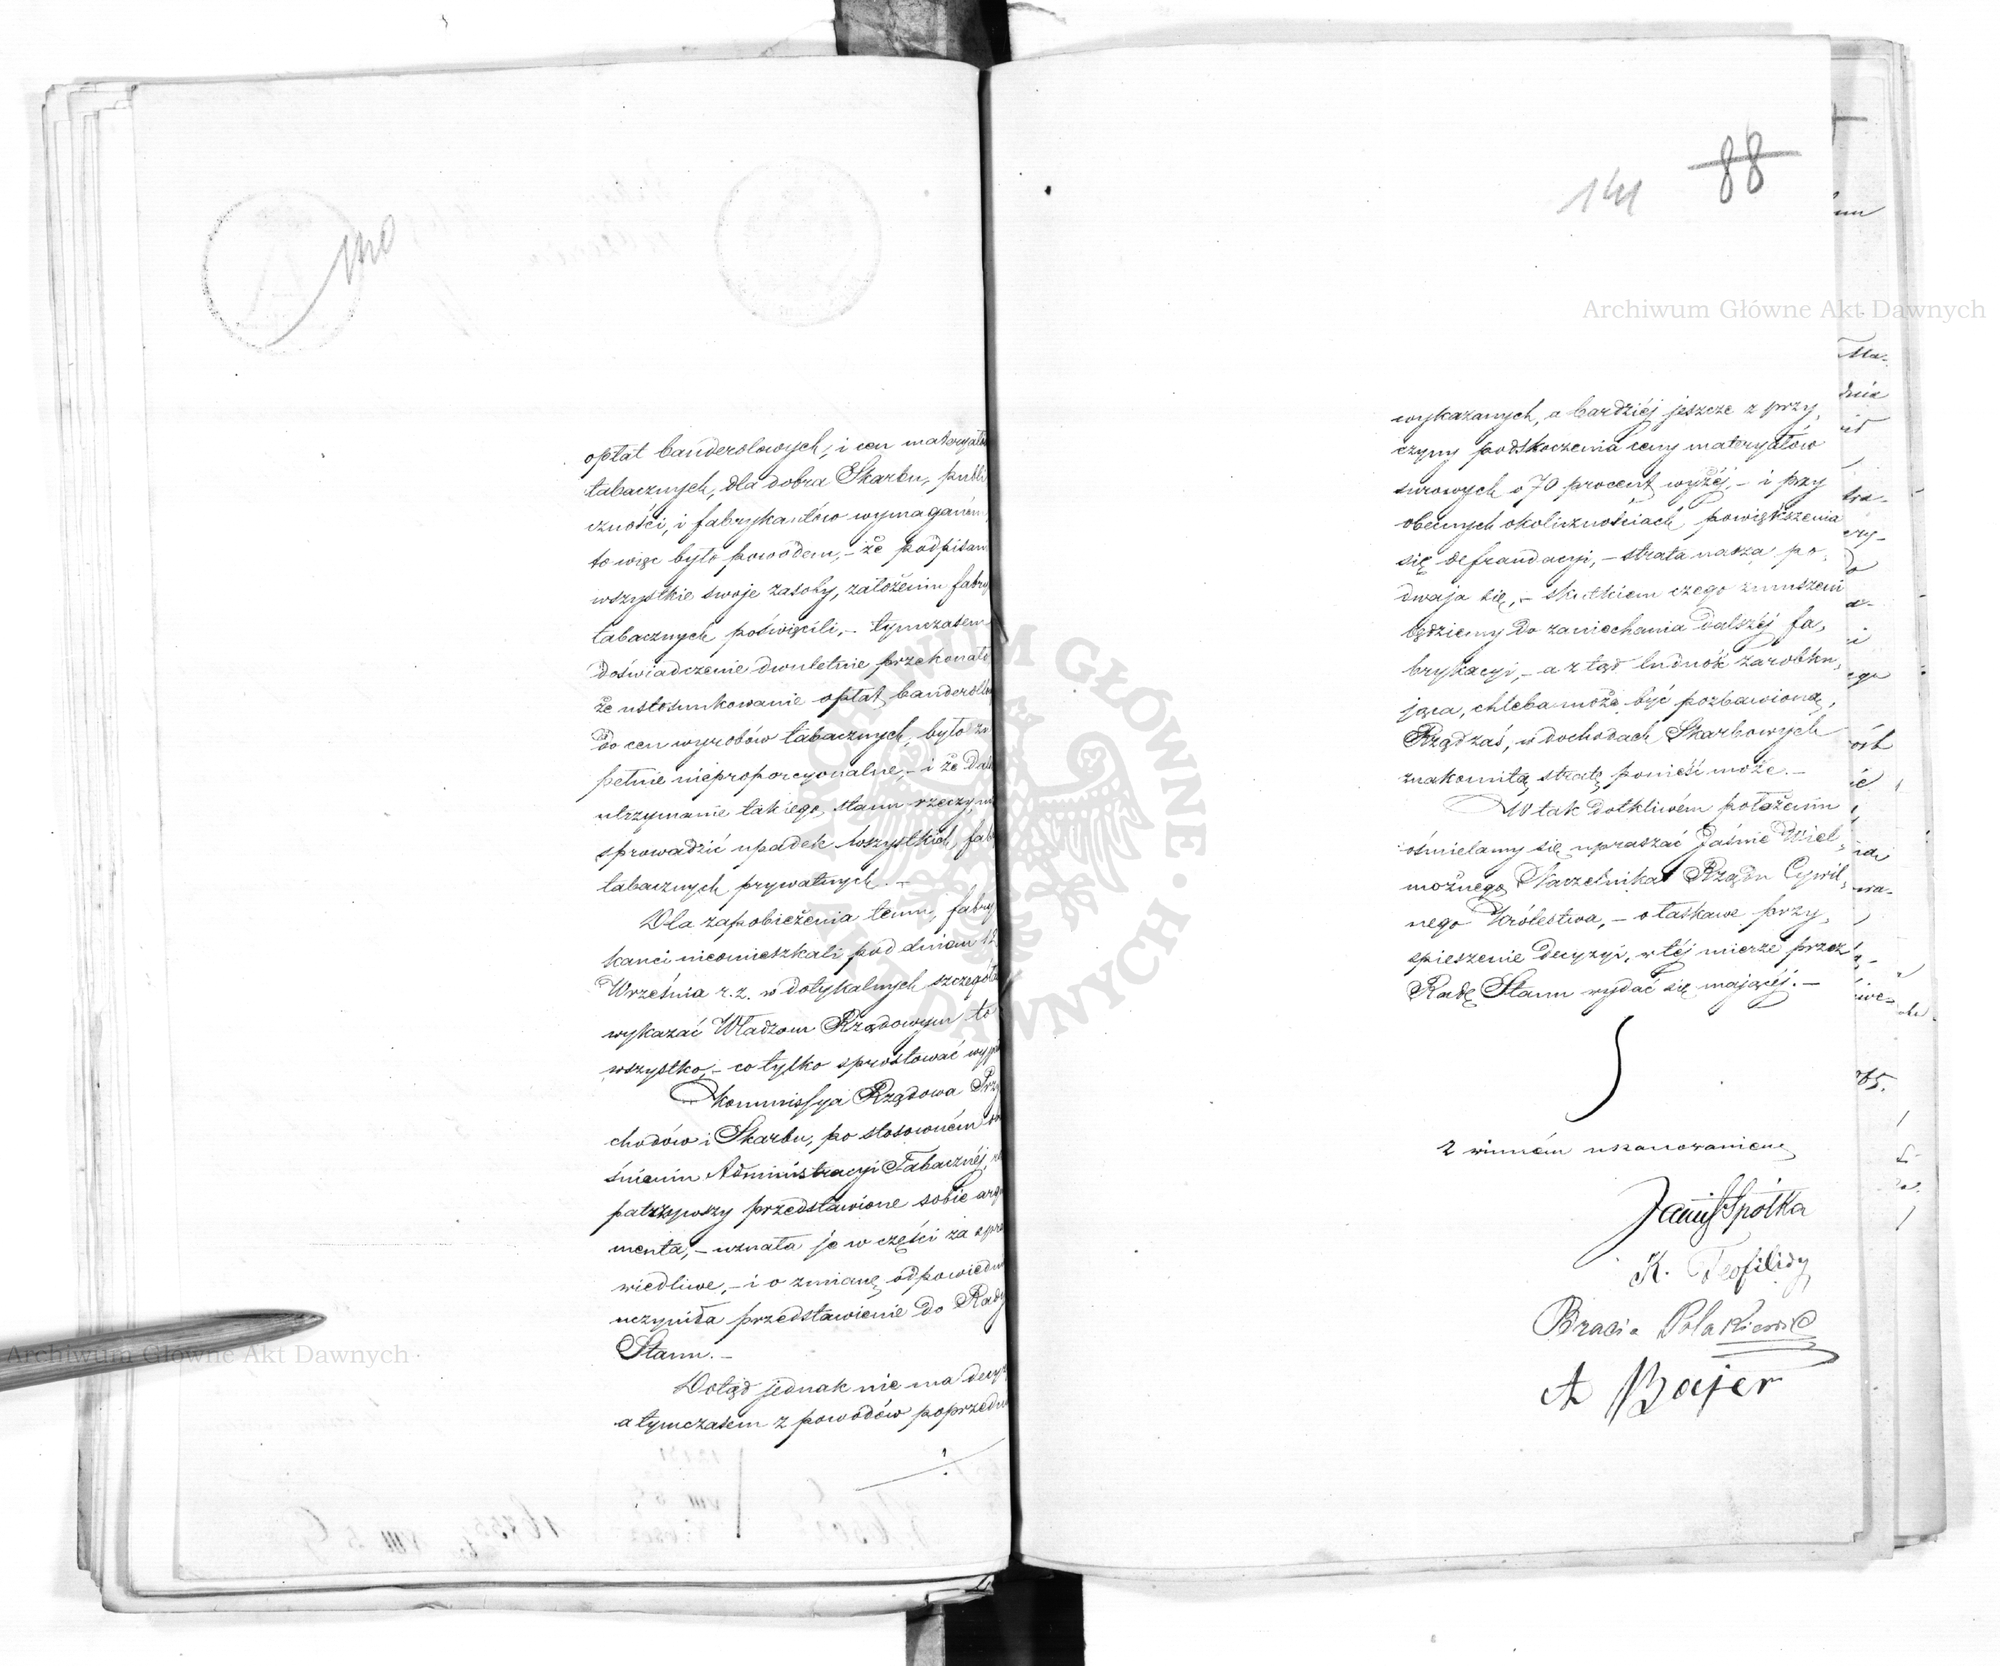 140
opłat banderolowych, i cen materyałów
tabacznych, dla dobra Skarbu, publi
czności, i fabrykantów wymaganém,
to więc było powodem, – że podpisani
wszystkie swoje zasoby, założeniu fabryk
tabacznych poświęcili, – tymczasem
doświadczenie dwuletnie przekonało,
że ustosunkowanie opłat banderolow
do cen wyrobów tabacznych, było zu
pełnie nieproporcyonalne, – i że dal
utrzymanie takiego, stanu rzeczy, mo
sprowadzić upadek wszystkich, fab
tabacznych prywatnych. –
Dla zapobieżenia temu, fabry
kanci nieomieszkali, pod dniem 12
Września r. z. w dotykalnych szczegół
wykazać Władzom Rządowym to
wszystko, – co tylko sprostować wyp
Kommissya Rządowa Przy
chodów i Skarbu, po stosowném
śnieniu Administracyi Tabacznéj, 
patrzywszy przedstawione sobie argu
menta, – uznała je w części za spra
wiedliwe, – i o zmianę odpowiedni
uczyniła przedstawienie do Rady
Stanu. –
Dotąd jednak nie ma decyz
a tymczasem z powodów poprzedni
141 88
wykazanych, a bardziéj jeszcze z przy,
czyny podskoczenia ceny materyałów
surowych o 70 procent wyżéj, – i przy
obecnych okolicznościach, powiększenia
się defraudacyi, – strata nasza po,
dwaja się, – skutkiem czego zmuszeni
będziemy do zaniechania dalszéj fa,
brykacyi, – a z tąd ludność zarobku,
jąca, chleba może być pozbawioną,
Rząd zaś, w dochodach Skarbowych
znakomitą stratę ponieść może. –
W tak dotkliwém położeniu
ośmielamy się upraszać Jaśnie Wiel,
możnego Naczelnika Rządu Cywil,
nego Królestwa, – o łaskawe przy,
spieszenie decyzyi, w téj mierze przez
Radę Stanu wydać się mającéj. –
Z winném uszanowaniem
Spółka
K. Teofilidy
Bracia Polakiewicz
A Bajer
Archiwum Główne Akt Dawnych
Archiwum Główne Akt Dawnych
ARCHIWUM GŁÓWNE AKT DAWNYCH